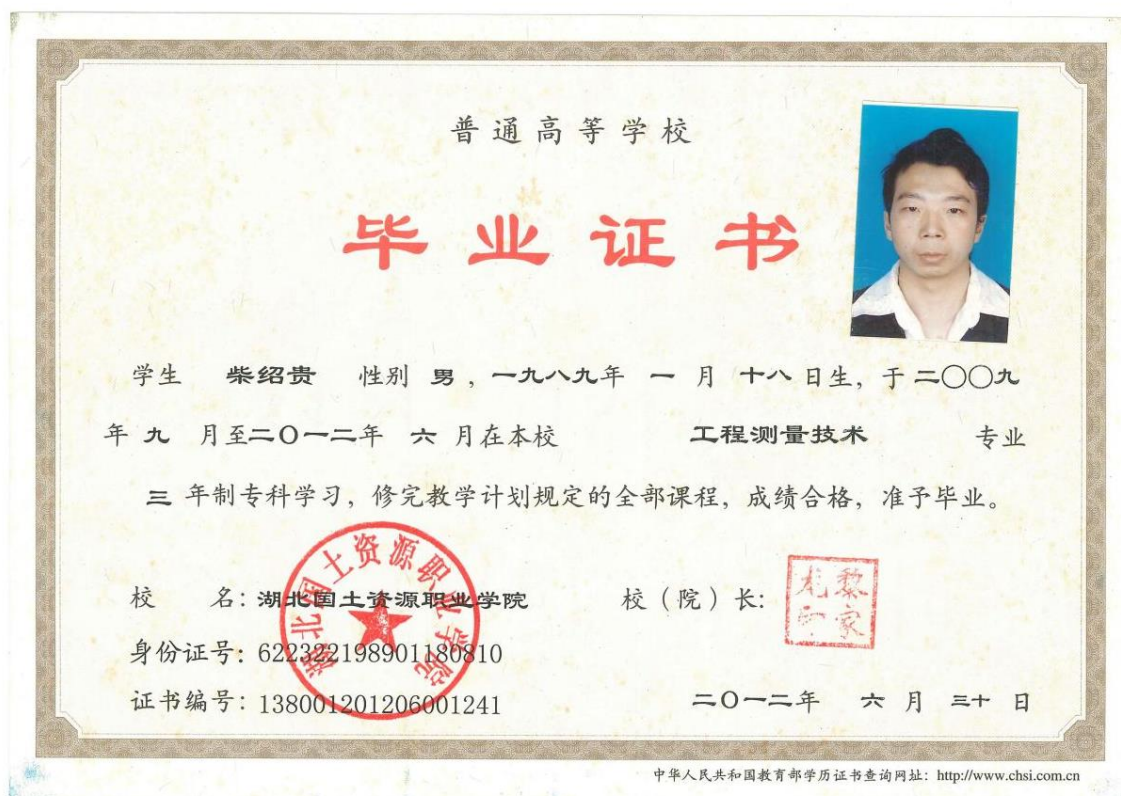 普通高等学校
毕业证书
学生 柴绍贵 性别 男，一九八九年 一 月 十八 日生，于 二〇〇九
年 九 月至二〇一二年 六 月在本校 工程测量技术 专业
三 年制专科学习，修完教学计划规定的全部课程，成绩合格，准予毕业。
湖北国土资源职业学院
校 名：湖北国土资源职业学院 校（院）长：
黎家龙印
身份证号：622322198901180810
证书编号：138001201206001241 二〇一二年 六 月 三十 日
中华人民共和国教育部学历证书查询网址：http://www.chsi.com.cn